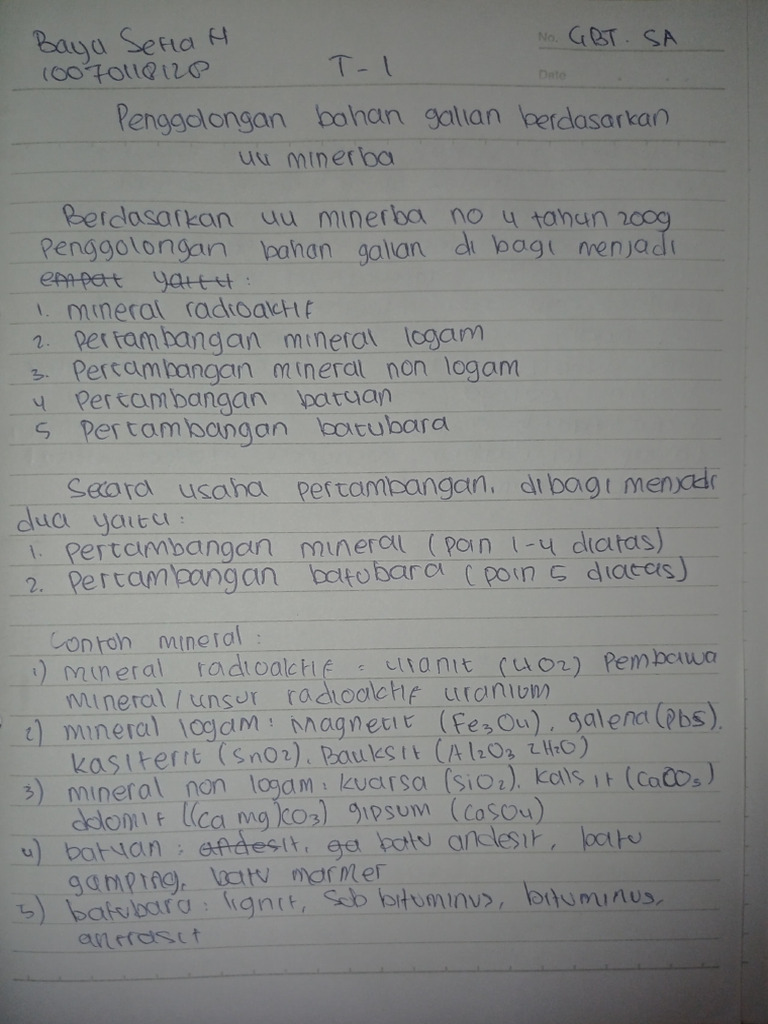 Bayu Setia H
10070118128
No. GBT. SA
Date
T-1
Penggolongan bahan galian berdasarkan
uu minerba
Berdasarkan uu minerba no 4 tahun 2009
Penggolongan bahan galian di bagi menjadi
empat yaitu :
1. mineral radioaktif
2. Pertambangan mineral logam
3. Pertambangan mineral non logam
4 Pertambangan batuan
5 Pertambangan batubara
Secara usaha pertambangan, dibagi menjadi
dua yaitu :
1. Pertambangan mineral (poin 1-4 diatas)
2. Pertambangan batubara (poin 5 diatas)
Contoh mineral :
1) mineral radioaktif = uranit (UO2) Pembawa
mineral/unsur radioaktif uranium
2) mineral logam : Magnetit (Fe3O4), galena (Pbs),
kasiterit (SnO2), Bauksit (Al2O3 2H2O)
3) mineral non logam : kuarsa (SiO2), Kalsit (CaCO3)
dolomit ((Ca mg)CO3) gipsum (CaSO4)
4) batuan : andesit, ga batu andesit, batu
gamping, batu marmer
5) batubara : lignit, sub bituminus, bituminus,
antrasit